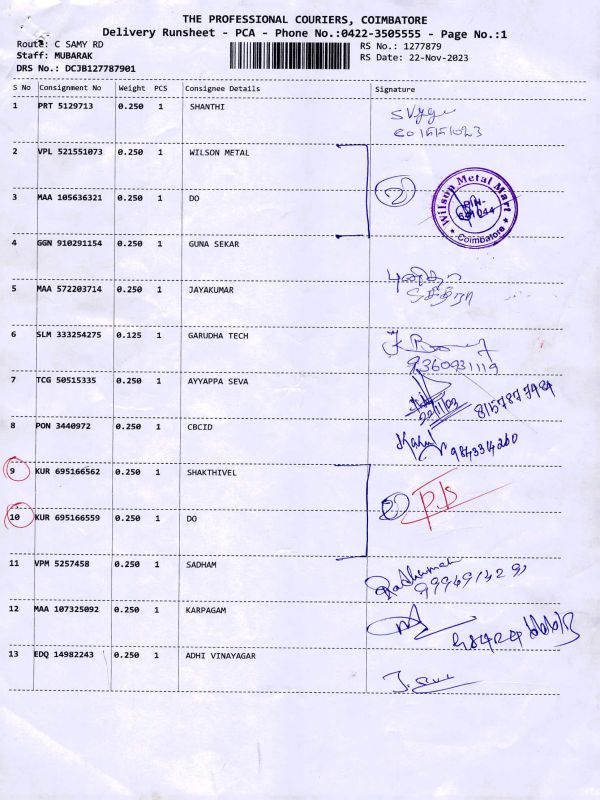 THE PROFESSIONAL COURIERS, COIMBATORE
Delivery Runsheet - PCA - Phone No.:0422-3505555 - Page No.:1
Route: C SAMY RD
RS No.: 1277879
Staff: MUBARAK
RS Date: 22-Nov-2023
DRS No.: DCJB127787901
S No Consignment No Weight PCS Consignee Details Signature
1 PRT 5129713 0.250 1 SHANTHI
2 VPL 521551073 0.250 1 WILSON METAL
3 MAA 105636321 0.250 1 DO 2
Wilson Metal Mart
Coimbatore
4 GGN 910291154 0.250 1 GUNA SEKAR
5 MAA 572203714 0.250 1 JAYAKUMAR
6 SLM 333254275 0.125 1 GARUDHA TECH
9360931119
7 TCG 50515335 0.250 1 AYYAPPA SEVA
8 PON 3440972 0.250 1 CBCID
9 KUR 695166562 0.250 1 SHAKTHIVEL
10 KUR 695166559 0.250 1 DO
11 VPM 5257458 0.250 1 SADHAM
12 MAA 107325092 0.250 1 KARPAGAM
13 EDQ 14982243 0.250 1 ADHI VINAYAGAR